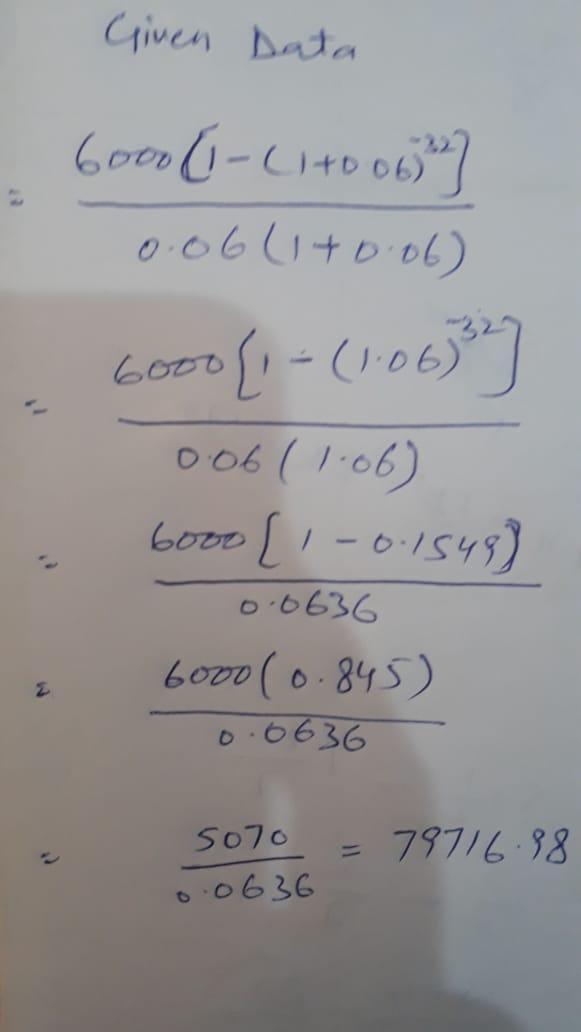 Given Data
6000[1-(1+0.06)^-32]
=
0.06(1+0.06)
6000[1-(1.06)^-32]
=
0.06(1.06)
6000[1-0.1549]
=
0.0636
6000(0.845)
=
0.0636
5070
= = 79716.98
0.0636